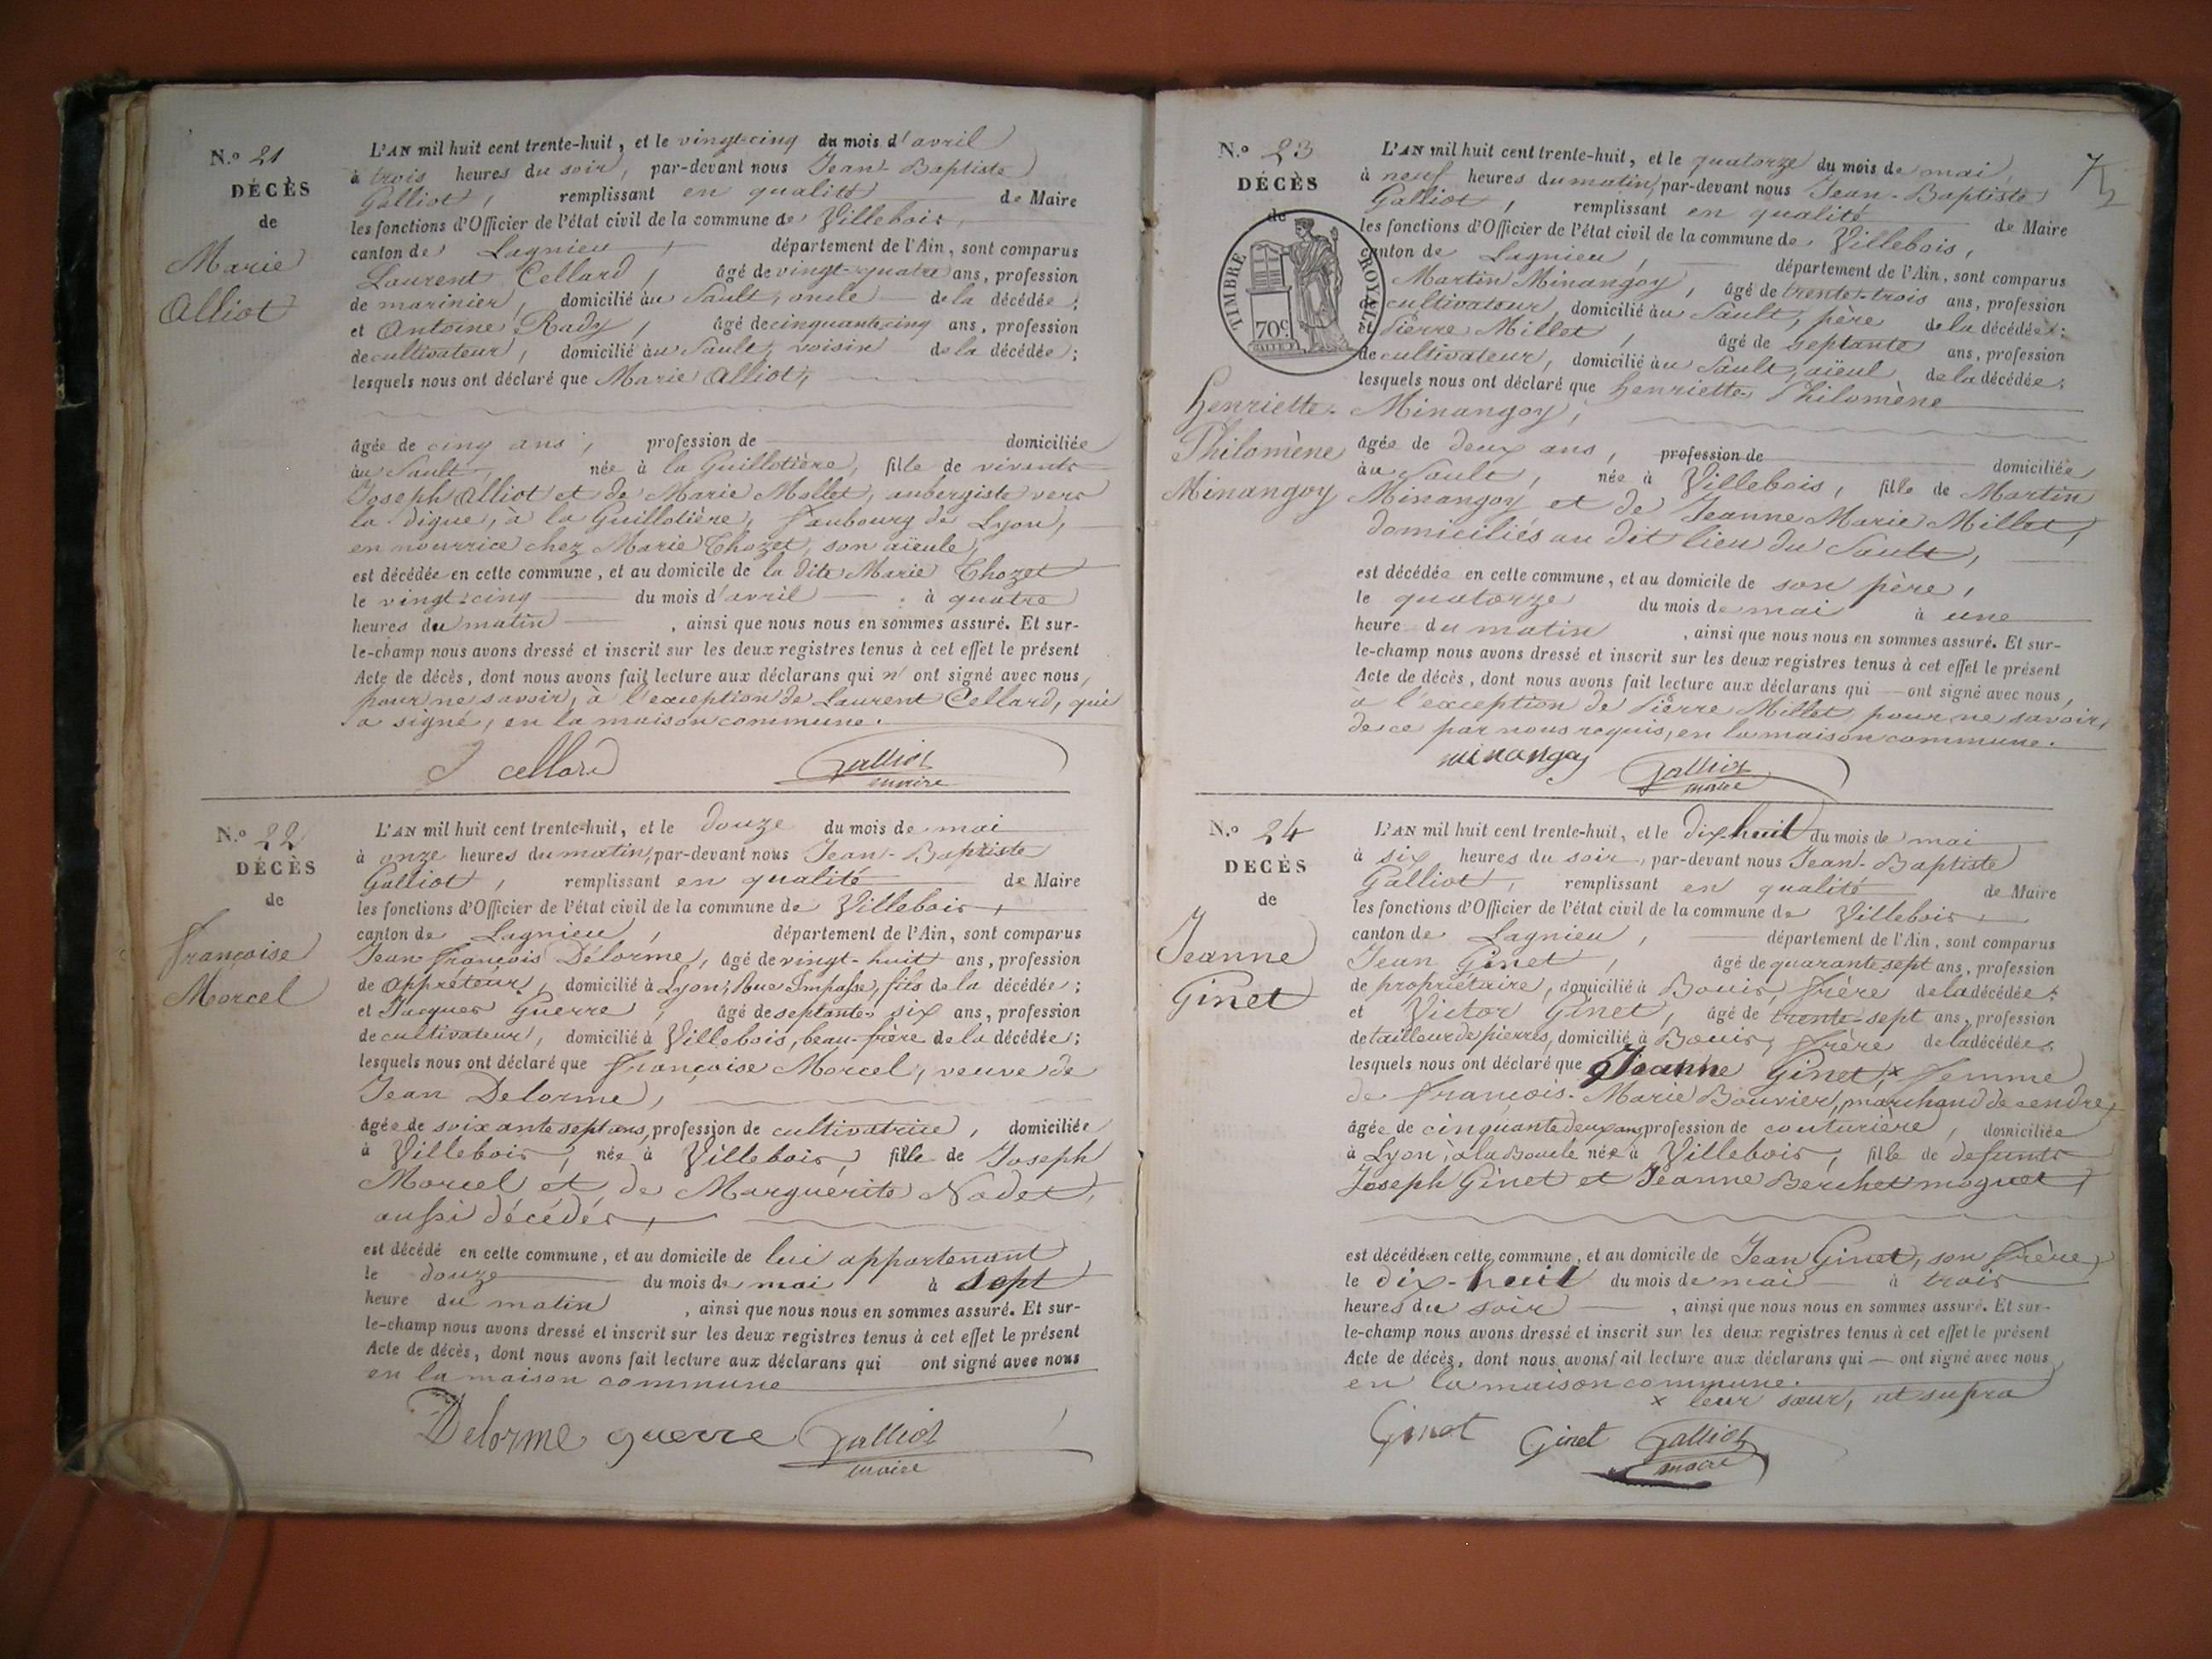 N.º 21
DÉCÈS
de
Marie
Alliot
L'AN mil huit cent trente-huit, et le vingt-cinq du mois d'avril
à trois heures du soir, par-devant nous Jean-Baptiste
Galliot, remplissant en qualité de Maire
les fonctions d'Officier de l'état civil de la commune de Villebois,
canton de Lagnieu, département de l'Ain, sont comparus
Laurent Cellard, âgé de vingt-quatre ans, profession
de marinier, domicilié au Sault, oncle de la décédée;
et Antoine Rady, âgé de cinquante cinq ans, profession
de cultivateur, domicilié au Sault, voisin de la décédée;
lesquels nous ont déclaré que Marie Alliot,
âgée de cinq ans, profession de domiciliée
au Sault, née à la Guillotière, fille de vivants
Joseph Alliot et de Marie Mollet, aubergiste vers
la digue, à la Guillotière, faubourg de Lyon,
en nourrice chez Marie Chozet, son aïeule,
est décédée en cette commune, et au domicile de la dite Marie Chozet
le vingt-cinq du mois d'avril à quatre
heures du matin, ainsi que nous nous en sommes assuré. Et sur-
le-champ nous avons dressé et inscrit sur les deux registres tenus à cet effet le présent
Acte de décès, dont nous avons fait lecture aux déclarans qui n'ont signé avec nous,
pour ne savoir, à l'exception de Laurent Cellard, qui
a signé, en la maison commune.
cellard Galliot
maire
N.º 22
DÉCÈS
de
françoise
Morcel
L'AN mil huit cent trente-huit, et le douze du mois de mai
à onze heures du matin, par-devant nous Jean-Baptiste
Galliot, remplissant en qualité de Maire
les fonctions d'Officier de l'état civil de la commune de Villebois,
canton de Lagnieu, département de l'Ain, sont comparus
Jean françois Délorme, âgé de vingt-huit ans, profession
de Apprêteur, domicilié à Lyon, Rue Impasse, fils de la décédée;
et Jacques Guerre, âgé de septante-six ans, profession
de cultivateur, domicilié à Villebois, beau-frère de la décédée;
lesquels nous ont déclaré que françoise Morcel, veuve de
Jean Delorme,
âgée de soixante sept ans, profession de cultivatrice, domiciliée
à Villebois, née à Villebois, fille de Joseph
Morcel et de Marguerite Nodet,
aussi décédés,
est décédé en cette commune, et au domicile de lui appartenant
le douze du mois de mai à sept
heure du matin, ainsi que nous nous en sommes assuré. Et sur-
le-champ nous avons dressé et inscrit sur les deux registres tenus à cet effet le présent
Acte de décès, dont nous avons fait lecture aux déclarans qui ont signé avec nous
en la maison commune
Delorme guerre Galliot
maire
N.º 23
DÉCÈS
de
TIMBRE ROYAL
70c
henriette-
Philomène
Minangoy
L'AN mil huit cent trente-huit, et le quatorze du mois de mai,
à neuf heures du matin, par-devant nous Jean-Baptiste
Galliot, remplissant en qualité de Maire
les fonctions d'Officier de l'état civil de la commune de Villebois,
canton de Lagnieu, département de l'Ain, sont comparus
Martin Minangoy, âgé de trente-trois ans, profession
de cultivateur, domicilié au Sault, père de la décédée;
et Pierre Millet, âgé de septante ans, profession
de cultivateur, domicilié au Sault, aïeul de la décédée;
lesquels nous ont déclaré que henriette Philomène
Minangoy,
âgée de deux ans, profession de domiciliée
au Sault, née à Villebois, fille de Martin
Minangoy et de Jeanne Marie Millet,
domiciliés au dit lieu du Sault,
est décédée en cette commune, et au domicile de son père,
le quatorze du mois de mai à une
heure du matin, ainsi que nous nous en sommes assuré. Et sur-
le-champ nous avons dressé et inscrit sur les deux registres tenus à cet effet le présent
Acte de décès, dont nous avons fait lecture aux déclarans qui ont signé avec nous,
à l'exception de Pierre Millet, pour ne savoir,
de ce par nous requis, en la maison commune.
minangoy Galliot
maire
N.º 24
DÉCÈS
de
Jeanne
Ginet
L'AN mil huit cent trente-huit, et le dix huit du mois de mai
à six heures du soir, par-devant nous Jean-Baptiste
Galliot, remplissant en qualité de Maire
les fonctions d'Officier de l'état civil de la commune de Villebois,
canton de Lagnieu, département de l'Ain, sont comparus
Jean Ginet, âgé de quarante sept ans, profession
de propriétaire, domicilié à Bouis, frère de la décédée;
et Victor Ginet, âgé de trente-sept ans, profession
de tailleur de pierres, domicilié à Bouis, frère de la décédée;
lesquels nous ont déclaré que Jeanne Ginet, x femme
de françois-Marie Bouvier, marchand de cendre,
âgée de cinquante deux ans, profession de couturière, domiciliée
à Lyon, à la Boucle née à Villebois, fille de defunts
Joseph Ginet et Jeanne Berchet moguet,
est décédée en cette commune, et au domicile de Jean Ginet, son frère,
le dix-huit du mois de mai à trois
heures du soir, ainsi que nous nous en sommes assuré. Et sur-
le-champ nous avons dressé et inscrit sur les deux registres tenus à cet effet le présent
Acte de décès, dont nous avons fait lecture aux déclarans qui ont signé avec nous
en la maison commune.
x leur sœur, ut supra
Ginet Ginet Galliot
maire